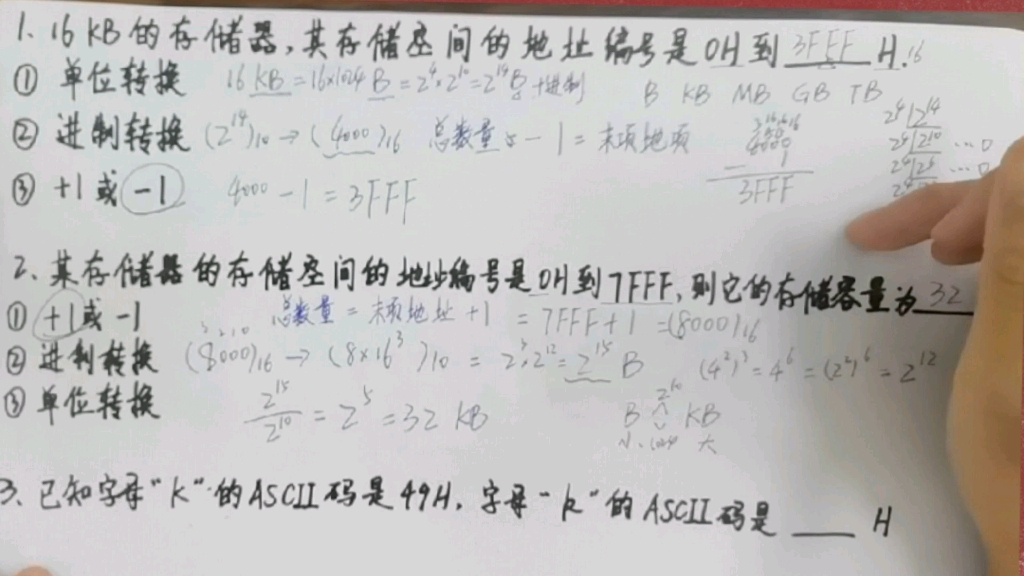 1、16 KB的存储器,其存储空间的地址编号是0H到3FFFH.
① 单位转换 16 KB=16×1024 B=2⁴×2¹⁰=2¹⁴B 十进制 B KB MB GB TB
② 进制转换 (2¹⁴)₁₀→(4000)₁₆ 总数量 -1=末项地项
4000
- 1
3FFF
③ +1或-1 4000-1=3FFF
2、某存储器的存储空间的地址编号是0H到7FFF,则它的存储容量为32
① +1或-1 总数量=末项地址+1 =7FFF+1=(8000)₁₆
② 进制转换 (8000)₁₆→(8×16³)₁₀=2³×2¹²=2¹⁵ B (4²)³=4⁶=(2²)⁶=2¹²
③ 单位转换 2¹⁵/2¹⁰=2⁵=32 KB B 2¹⁰ KB
小 1024 大
3、已知字母"K"的ASCII码是49H,字母"k"的ASCII码是____H